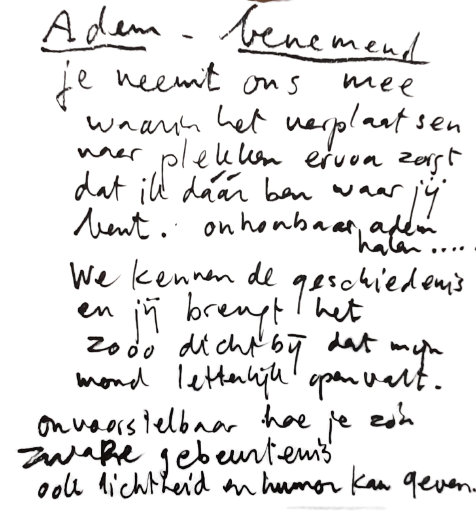 Adem - benemend
je neemt ons mee
waarin het verplaatsen
naar plekken ervoor zorgt
dat ik dáár ben waar jij
bent. onhoorbaar adem
halen.....
We kennen de geschiedenis
en jij brengt het
zooo dichtbij dat mijn
mond letterlijk openvalt.
onvoorstelbaar hoe je zo'n
zware gebeurtenis
ook lichtheid en humor kan geven.